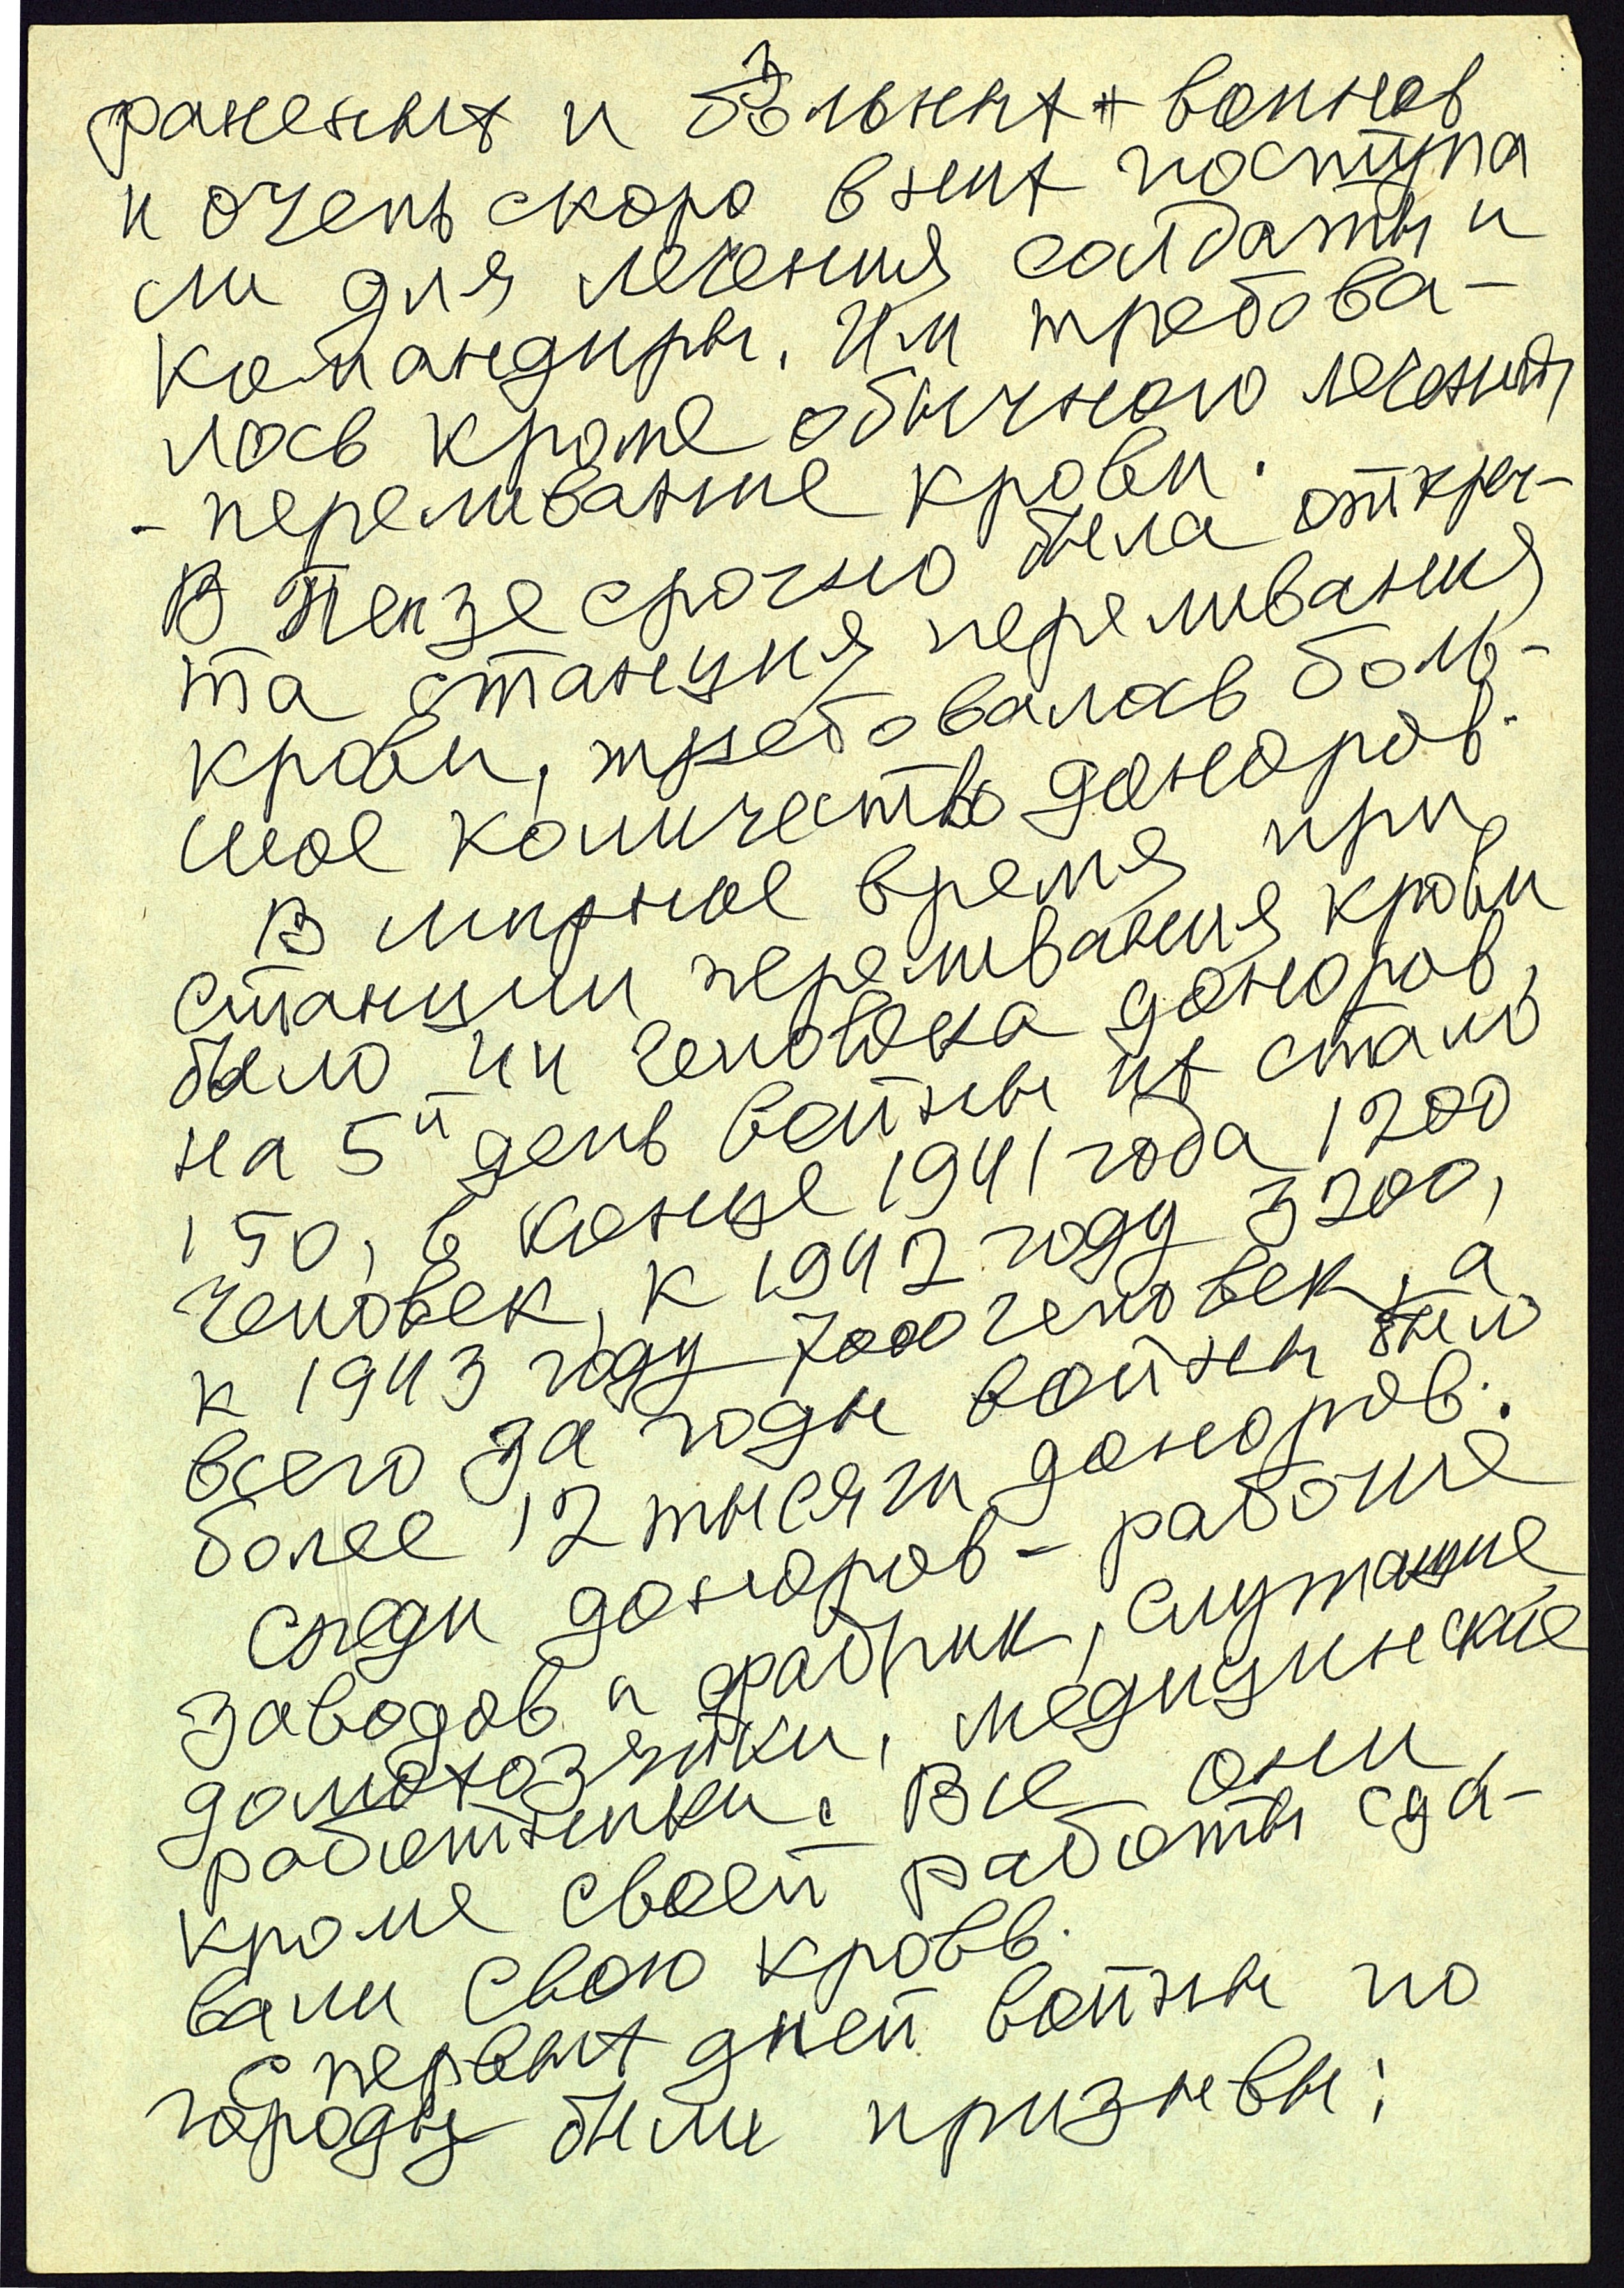 3
раненых и больных воинов
и очень скоро в них поступа
ли для лечения солдаты и
командиры. Им требова-
лось кроме обычного лечения
- переливание крови.
В Пензе срочно была откры-
та станция переливания
крови, требовалось боль-
шое количество доноров.
В мирное время при
станции переливания крови
было 44 человека доноров,
на 5й день войны их стало
150, в конце 1941 года 1200
человек, к 1942 году 3200,
к 1943 году 7000 человек, а
всего за годы войны было
более 12 тысяч доноров.
Среди доноров - рабочие
заводов и фабрик, служащие,
домохозяйки, медицинские
работники. Все они
кроме своей работы сда-
вали свою кровь.
С первых дней войны по
городу были призывы: